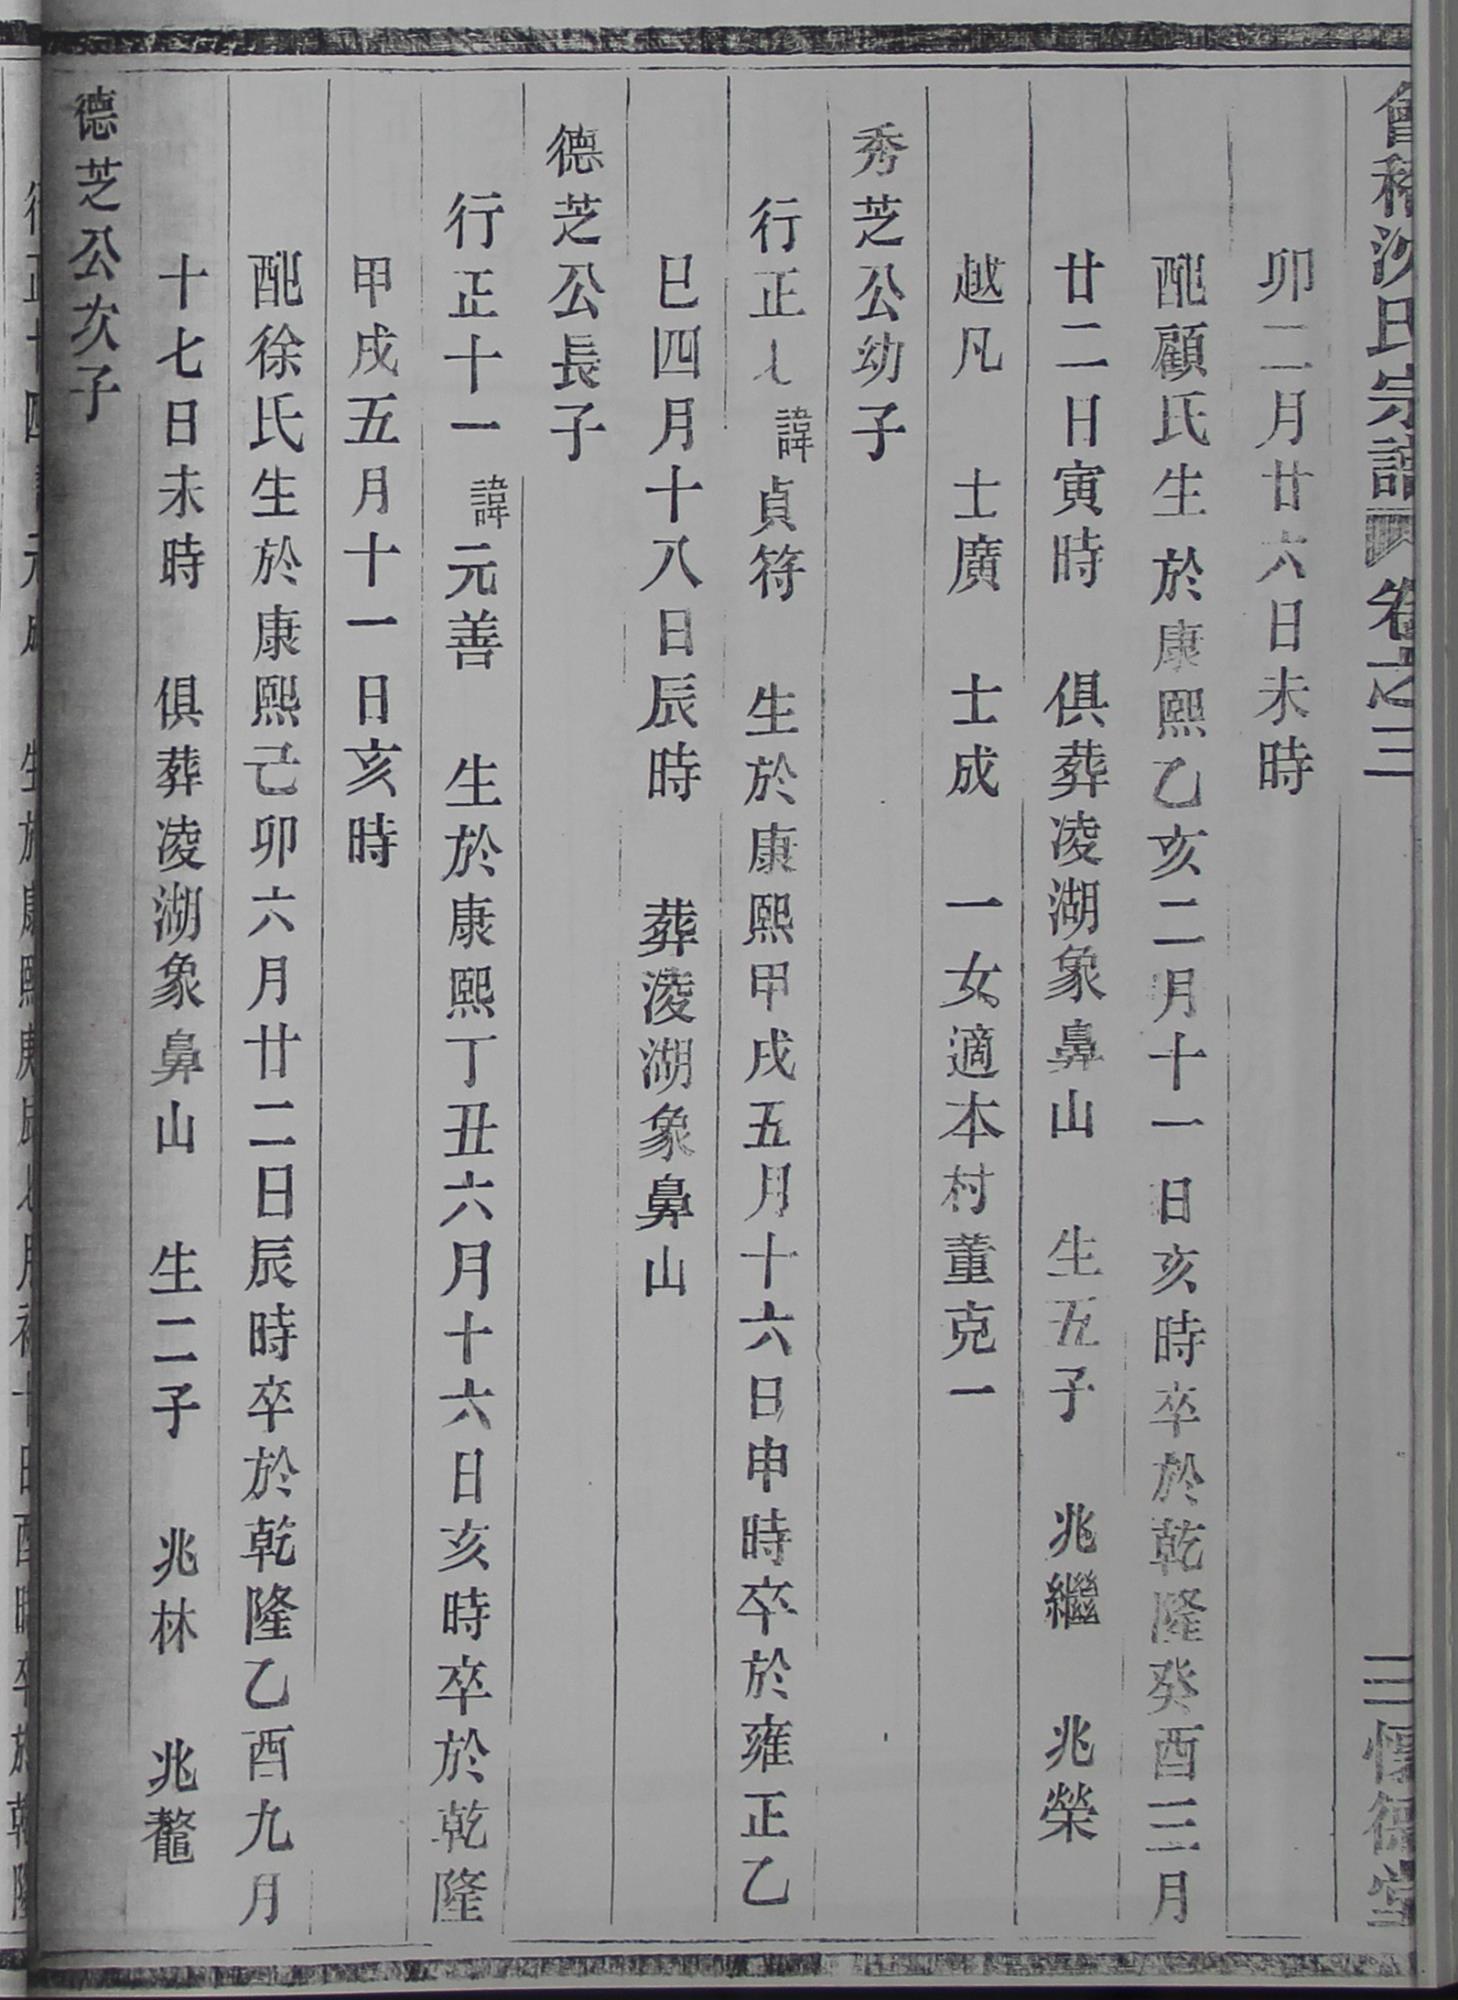 會稽沈氏宗譜 卷之三 三 德堂
卯二月廿六日未時
配顧氏生於康熙乙亥二月十一日亥時卒於乾隆癸酉三月
廿二日寅時 俱葬凌湖象鼻山 生五子 兆繼 兆榮
越凡 士廣 士成 一女適本村董克一
秀芝公幼子
行正七 諱貞符 生於康熙甲戌五月十六日申時卒於雍正乙
巳四月十八日辰時 葬淩湖象鼻山
德芝公長子
行正十一 諱元善 生於康熙丁丑六月十六日亥時卒於乾隆
甲戌五月十一日亥時
配徐氏生於康熙己卯六月廿二日辰時卒於乾隆乙酉九月
十七日未時 俱葬凌湖象鼻山 生二子 兆林 兆鼇
德芝公次子
行正十四 諱元 生於康熙庚辰七月初十日酉時卒於乾隆